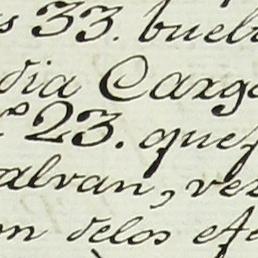 s 33. buelt
dia Carga
º 23. que
alvan, vez
on delos efe